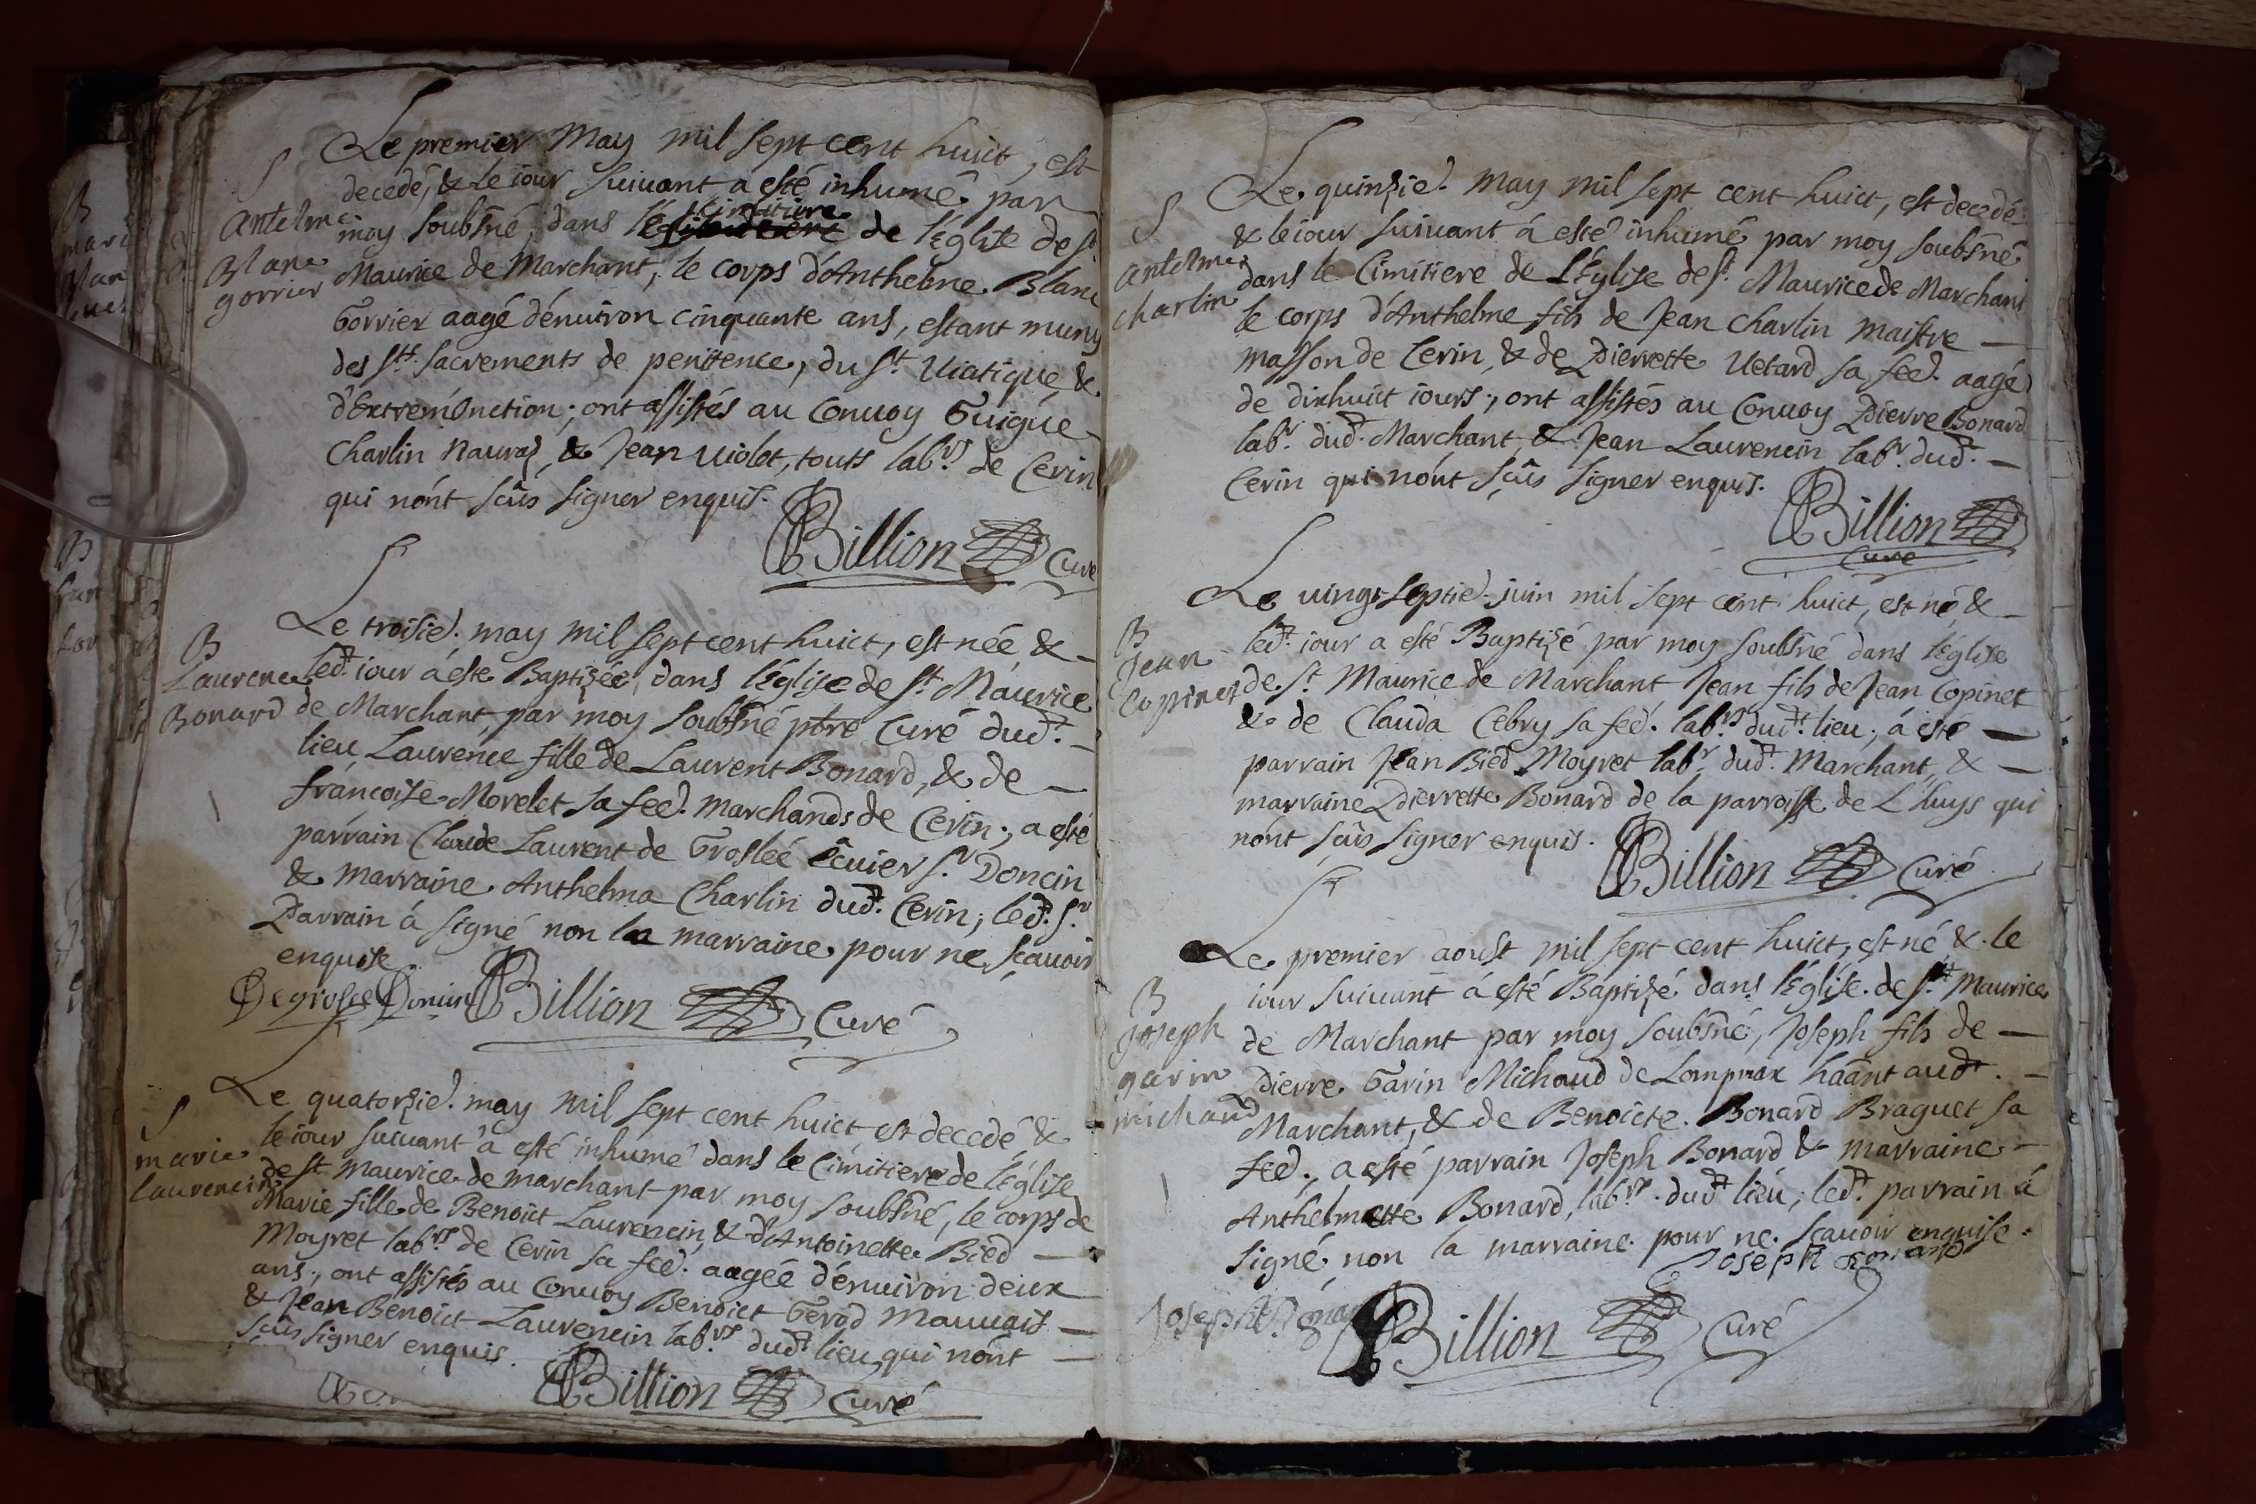 Le premier May mil sept cent huict, est
decedé, & le iour suiuant a esté inhumé par
S
Antelme
Blanc
gorrier
moy soubsné, dans le cimitiere de l'Eglise de st.
Maurice de Marchant, le corps d'Anthelme Blanc
Gorrier aagé d'enuiron cinquante ans, estant muny
des sts. sacrements de penitence, du st. Viatique, &
d'Extremonction; ont assistés au Conuoy Guigue
Charlin Nauraz, & Jean Violet, touts labrs de Cerin
qui n'ont sçûs signer enquis.
Billion Curé
B
Laurence
Bonard
Le troisie. may mil sept cent huict, est née &
led. iour á esté Baptizée, dans l'Eglise de st. Maurice
de Marchant, par moy soubsné ptre Curé dud.
lieu, Laurence fille de Laurent Bonard, & de
françoise Morelet sa fee. marchands de Cerin; a esté
parrain Claude Laurent de Grosleé écuier sr. Doncin
& marraine Anthelma Charlin dud. Cerin; led. sr
Parrain á signé non la marraine pour ne sçauoir
enquise
Degroslee Doncin Billion Curé
S
marie
laurencin
Le quatorzie. may mil sept cent huict, est decedé, &
le iour suiuant a esté inhumé dans le Cimitiere de l'Eglise
de st. Maurice de marchant par moy soubsné, le corps de
Marie fille de Benoict Laurencin, & d'Antoinette Bied
Moyret labrs de Cerin sa fee. aagée d'enuiron deux
ans; ont assistés au Conuoy Benoict Gerod Mauuais
& Jean Benoict Laurencin labrs. dud. lieu, qui n'ont
sçûs signer enquis.
Billion Curé
S
Antelme
charlin
Le quinzie. May mil sept cent huict, est decedé
& le iour suiuant á esté inhumé par moy soubsné
dans le Cimitiere de L'Eglise de st. Maurice de Marchant
le corps d'Anthelme fils de Jean Charlin maistre
masson de Cerin, & de Pierrette Vetard sa fee. aagé
de dixhuict iours; ont assistés au Conuoy Pierre Bonard
labr. dud. Marchant, & Jean Laurencin labr. dud.
Cerin qui n'ont sçûs signer enquis.
Billion
Curé
B
Jean
Copinet
Le vingt septie. juin mil sept cent huict, est né, &
led. iour a esté Baptizé par moy soubsné dans l'Eglise
de st. Maurice de Marchant Jean fils de Jean Copinet
& de Clauda Cebry sa fee. labrs. dud. lieu; á esté
parrain Jean Bied Moyret labr. dud. Marchant, &
marraine Pierrette Bonard de la parroisse de Lhuys qui
n'ont sçûs signer enquis.
Billion Curé
B
Joseph
garin
michaud
Le premier aoust mil sept cent huict, est né & le
iour suiuant á esté Baptizé dans l'Eglise de st. Maurice
de Marchant par moy soubsné, Joseph fils de
Pierre Garin Michaud de Lompnax háánt aud.
Marchant, & de Benoicte Bonard Braguet sa
fee.; a esté parrain Joseph Bonard & marraine
Anthelmette Bonard, labrs. dud. lieu; led. parrain á
signé non la marraine pour ne sçauoir enquise.
Joseph Bonard
Joseph Bonard Billion Curé